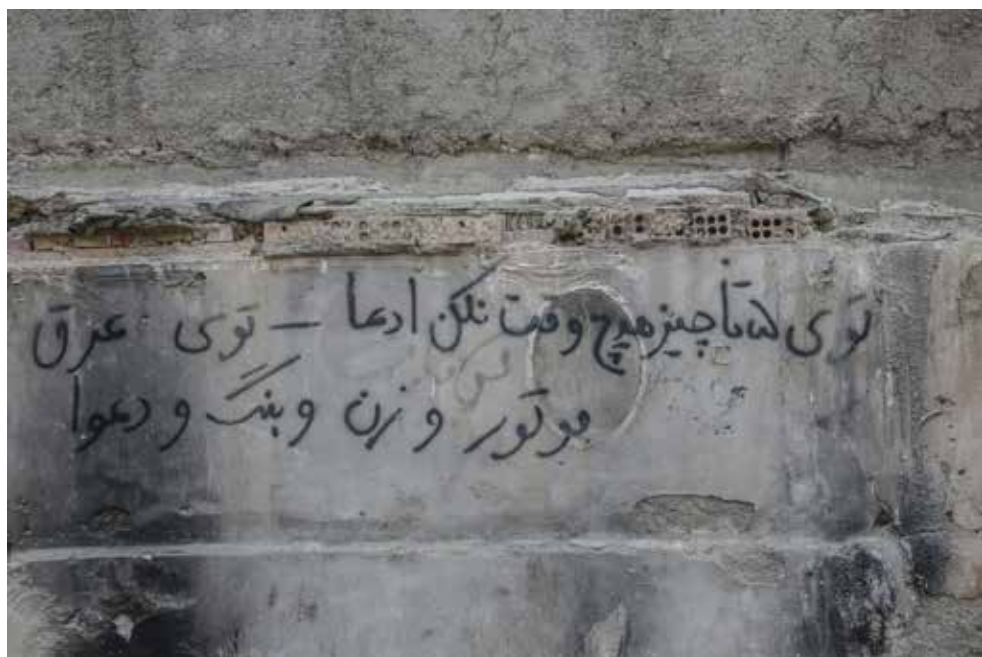 توی ۵ تا چیز هیچ وقت نکن ادعا – توی عرق
موتور و زن و بنگ و دعوا